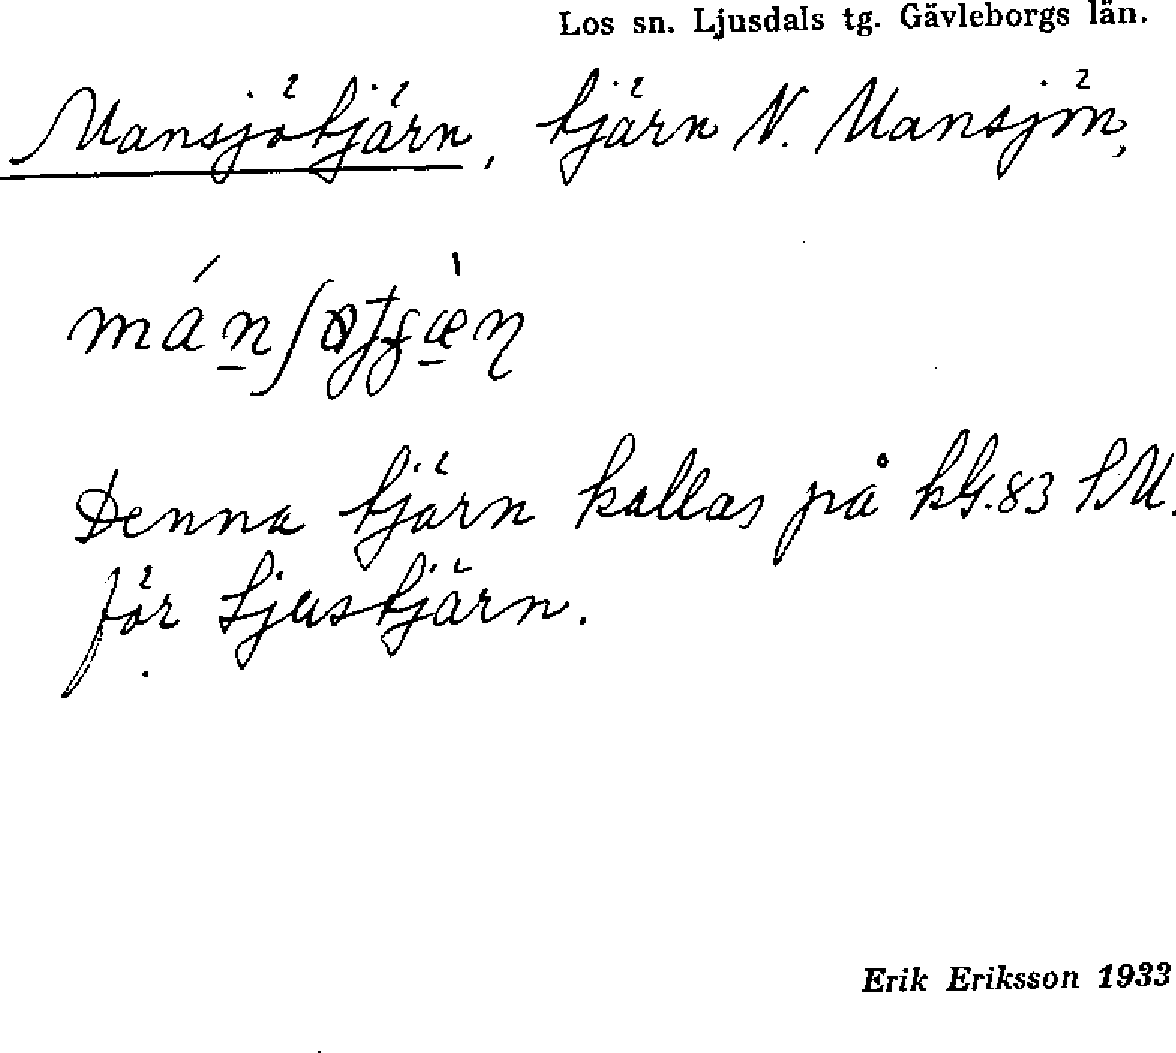 Los sn. Ljusdals tg. Gävleborgs län.
Mansjötjärn, tjärn N. Mansjön,
Denna tjärn kallas på kbl. 83 SU.
för Ljustjärn.
Erik Eriksson 1933